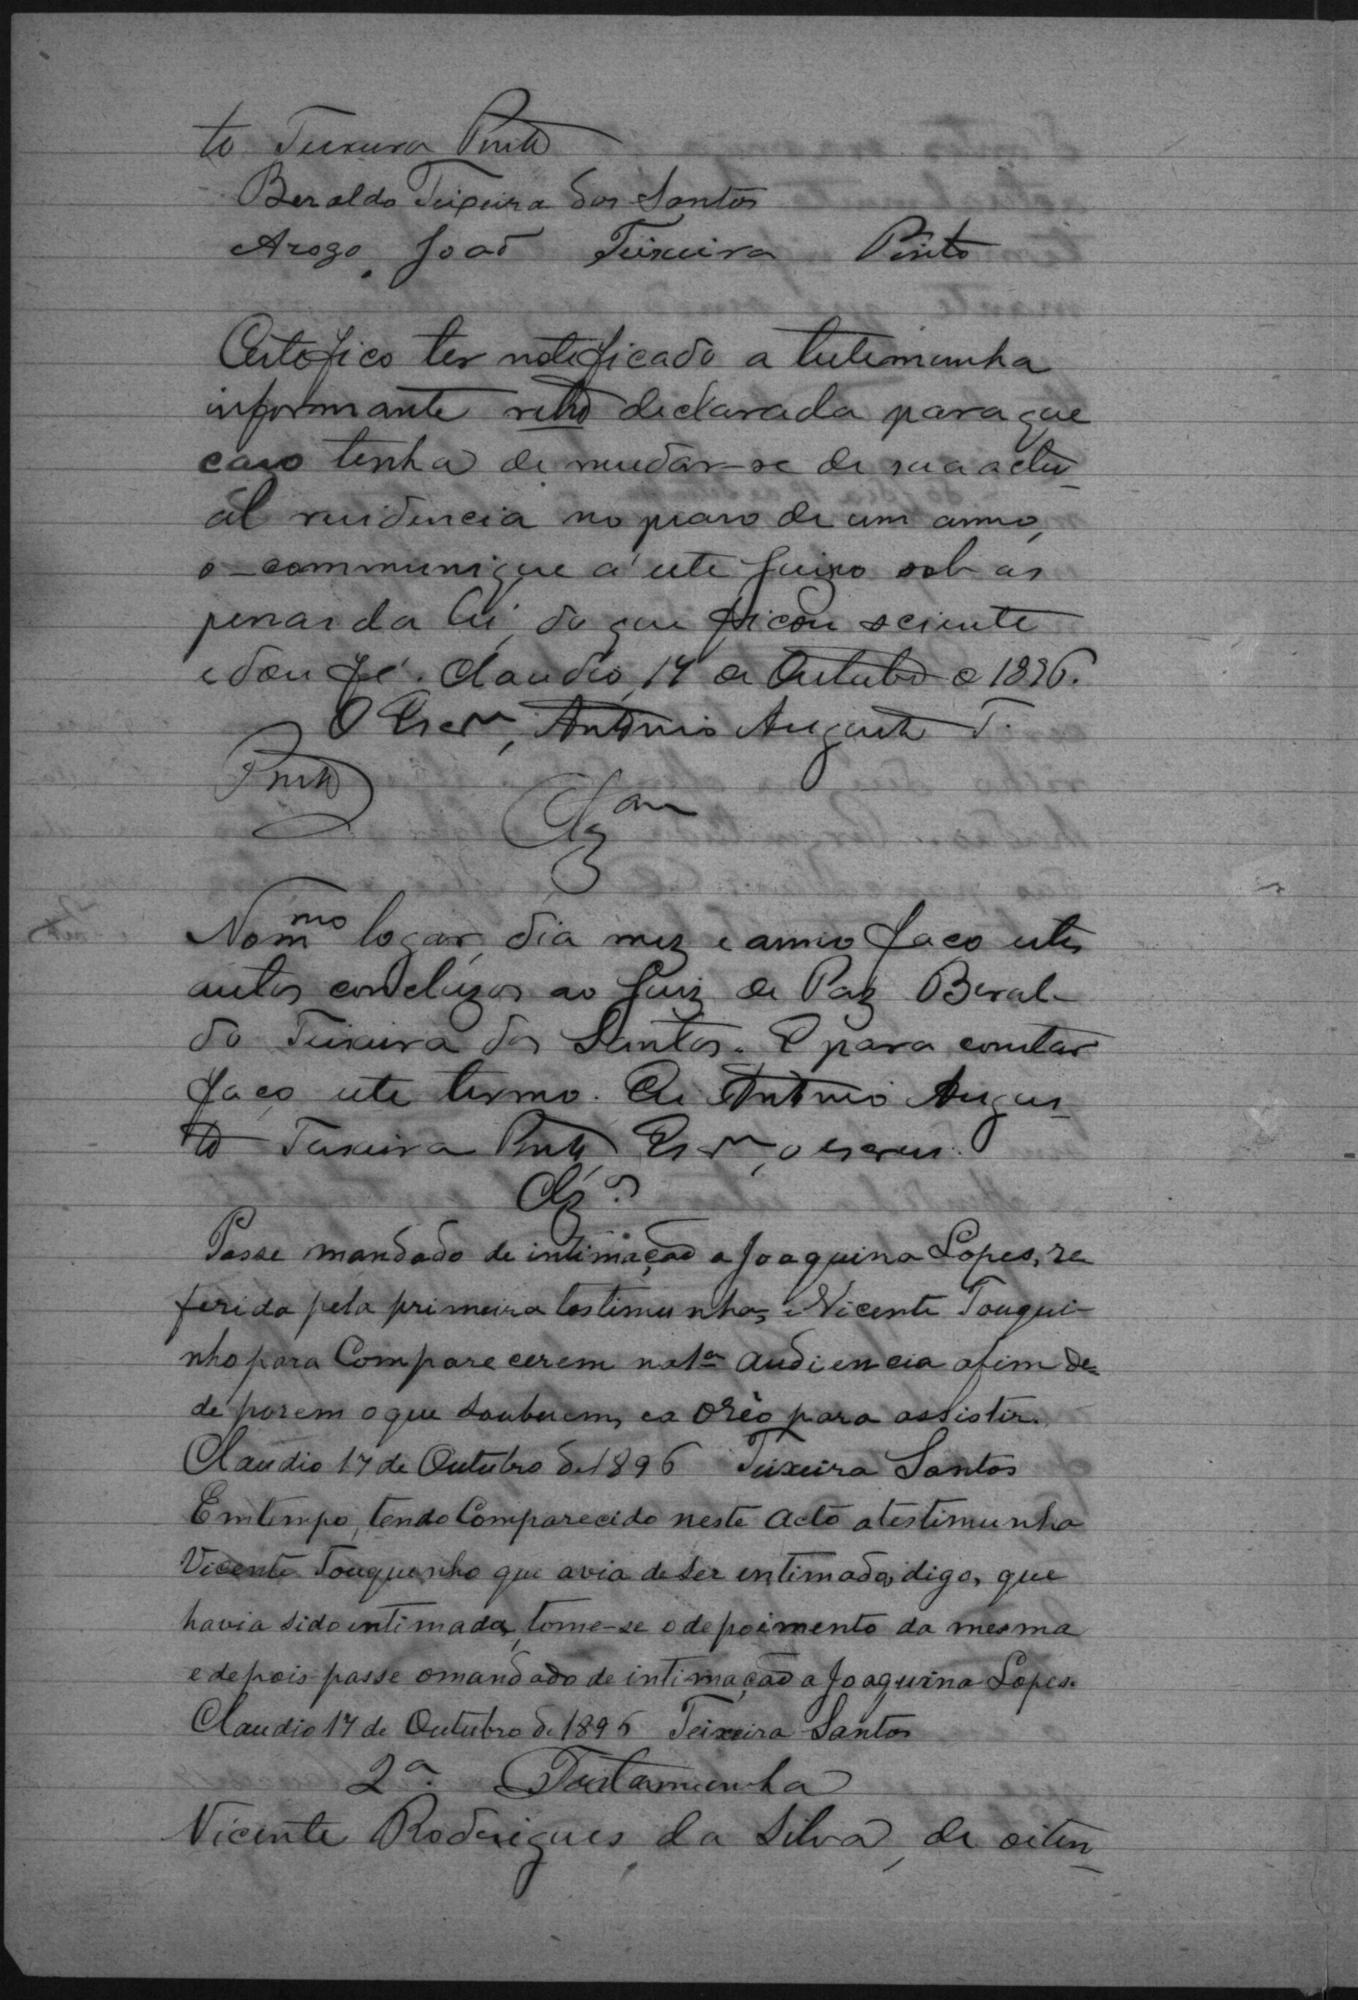 to Teixeira Pinto
Beraldo Teixeira dos Santos
Arogo João Teixeira Pinto
Certefico ter notificado a testemunha
informante retro declarada para que
caso tenha de mudar-se de sua actu-
al residencia no praso de um anno,
o-communique á este Juizo sob as
penas da lei, do que ficou sciente
e dou fé. Claudio, 17 de Outubro de 1896.
O Escrm, Antonio Augusto T.
Pinto
Clzam
No mmo logar, dia mez e anno faço estes
autos concluzos ao Juiz de Paz Beral-
do Teixeira dos Santos. E para constar
faço este termo. Eu Antonio Augus-
to Teixeira Pinto Escrm, o escrevi.
Clz.os
Passe mandado de intimação a Joaquina Lopes, re
ferida pela primeira testimunha, e Vicente Touqui-
nho para Comparecerem na 1a audiencia afim de-
de porem o que souberem, e a oréo para assistir.
Claudio 17 de Outubro de 1896 Teixeira Santos
Emtempo, tendo Comparecido neste acto a testimunha
Vicente Touquinho que avia de ser entimada, digo, que
havia sido entimada, tome-se o depoimento da mesma
e depois passe o mandado de intimação a Joaquina Lopes.
Claudio 17 de Outubro de 1896 Teixeira Santos
2a. Testamunha
Vicente Rodrigues da Silva, de oiten-